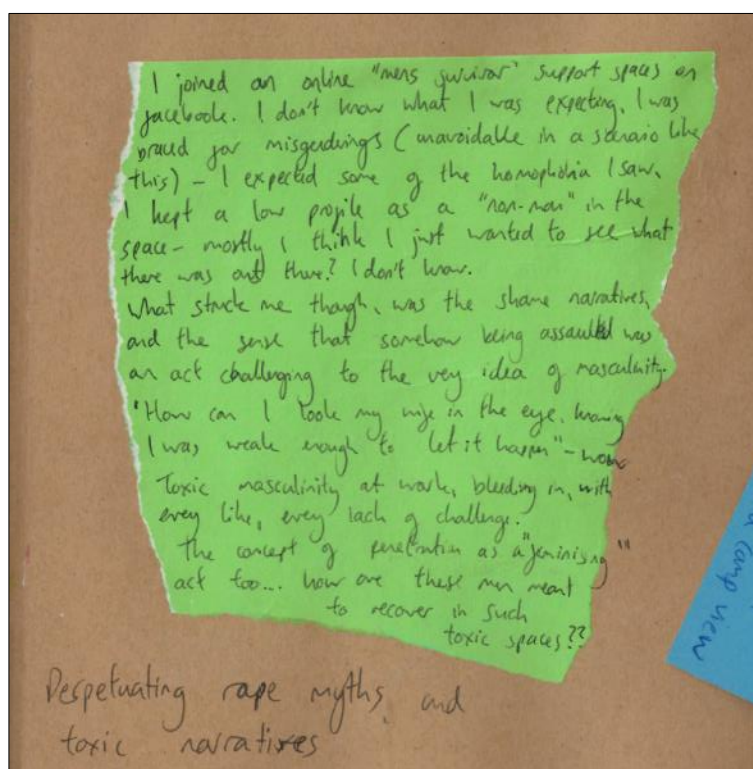 I joined an online "mens survivor" support spaces on
facebook. I don't know what I was expecting, I was
braced for misgenderings (unavoidable in a scenario like
this) – I expected some of the homophobia I saw.
I kept a low profile as a "non-man" in the
space – mostly I think I just wanted to see what
there was out there? I don't know.
What struck me though, was the shame narratives,
and the sense that somehow being assaulted was
an act challenging to the very idea of masculinity.
"How can I look my wife in the eye, knowing
I was weak enough to let it happen" – wow
Toxic masculinity at work, bleeding in, with
every like, every lack of challenge.
The concept of penetration as a "feminising"
act too... how are these men meant
to recover in such
toxic spaces??
camp view
Perpetuating rape myths, and
toxic narratives